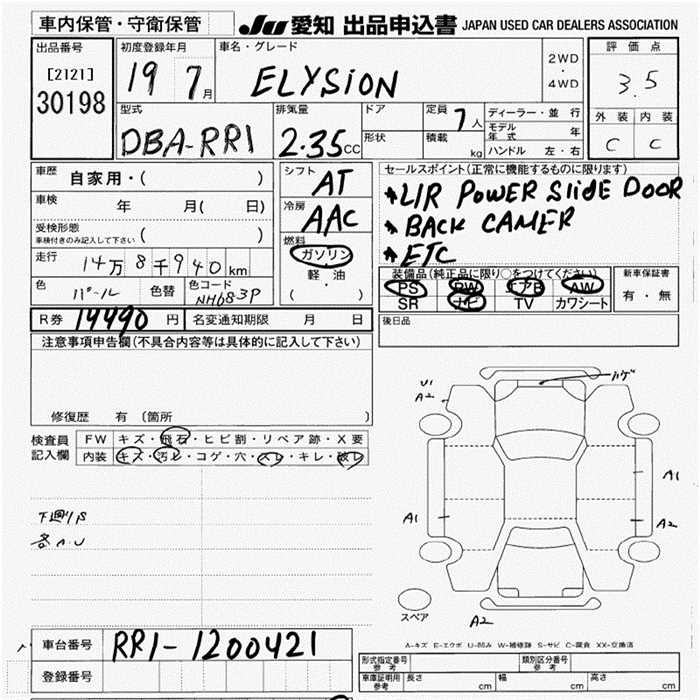 車内保管・守衛保管
JU 愛知 出品申込書 JAPAN USED CAR DEALERS ASSOCIATION
出品番号
[2121]
30198
初度登録年月
19 7月
車名・グレード
ELYSION
2WD
・
4WD
評価点
3.5
外装 内装
C C
型式
DBA-RR1
排気量
2.35cc
ドア
形状
定員 7人
積載 kg
ディーラー・並行
モデル年式 年
ハンドル 左・右
車歴 自家用・( )
車検 年 月( 日)
受検形態
車検付きのみ記入して下さい ( )
走行 14万8千940km
色 パール 色替 色コード NH683P
シフト AT
冷房 AAC
燃料
ガソリン
軽・油
( )
セールスポイント(正常に機能するものに限ります)
*L/R POWER SliDE DOOR
*BACK CAMER
*ETC
装備品(純正品に限り○をつけてください)
PS PW エアB AW
SR ナビ TV カワシート
新車保証書
有・無
R券 14490 円 名変通知期限 月 日
後日品
注意事項申告欄(不具合内容等は具体的に記入して下さい)
修復歴 有 (箇所
検査員記入欄
FW キズ・飛石・ヒビ割・リペア跡・X要
内装 キズ・汚レ・コゲ・穴・スレ・キレ・破レ
下廻りS
各A.U
U1
A2
ハゲ
A1
A1
A2
スペア
A2
A-キズ E-エクボ U-凹み W-補修跡 S-サビ C-腐食 XX-交換済
車台番号 RR1-1200421
登録番号
形式指定番号 参考 類別区分番号 参考
車庫証明用 参考 長さ cm 幅 cm 高さ cm